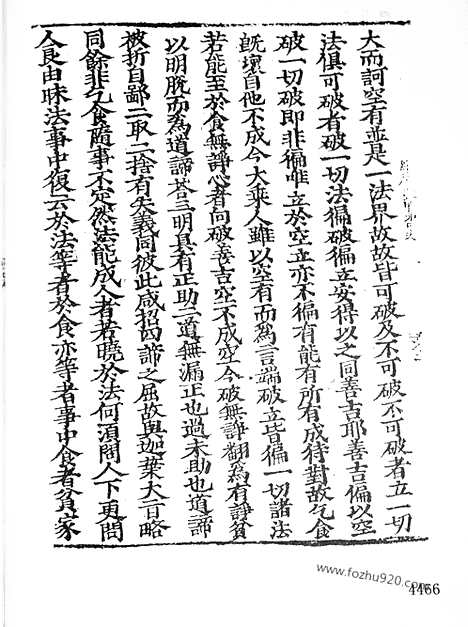 大而訶空有並是一法界故故皆可破及不可破不可破者立一切
法俱可破者破一切法徧破徧立安得以之同善吉耶善吉徧以空
破一切破即非徧唯立於空立亦不徧有能有所有成待對故乞食
既壞自他不成今大乘人雖以空有而為言端破立皆徧一切諸法
若能至於食無諍心者尚破善吉空不成空今破無諍翻為有諍貧
以明脫而為道諦荅三明具有正助二道無漏正也過未助也道諦
被折自鄙二取二捨有失義同彼此咸招四諦之屈故與迦葉大旨略
同餘非乞食隨事不定然法能成人者若曉於法何須問人下更問
人良由昧法事中復云於法等者於食亦等者事中食者貧家
www.fozhu920.com
4466